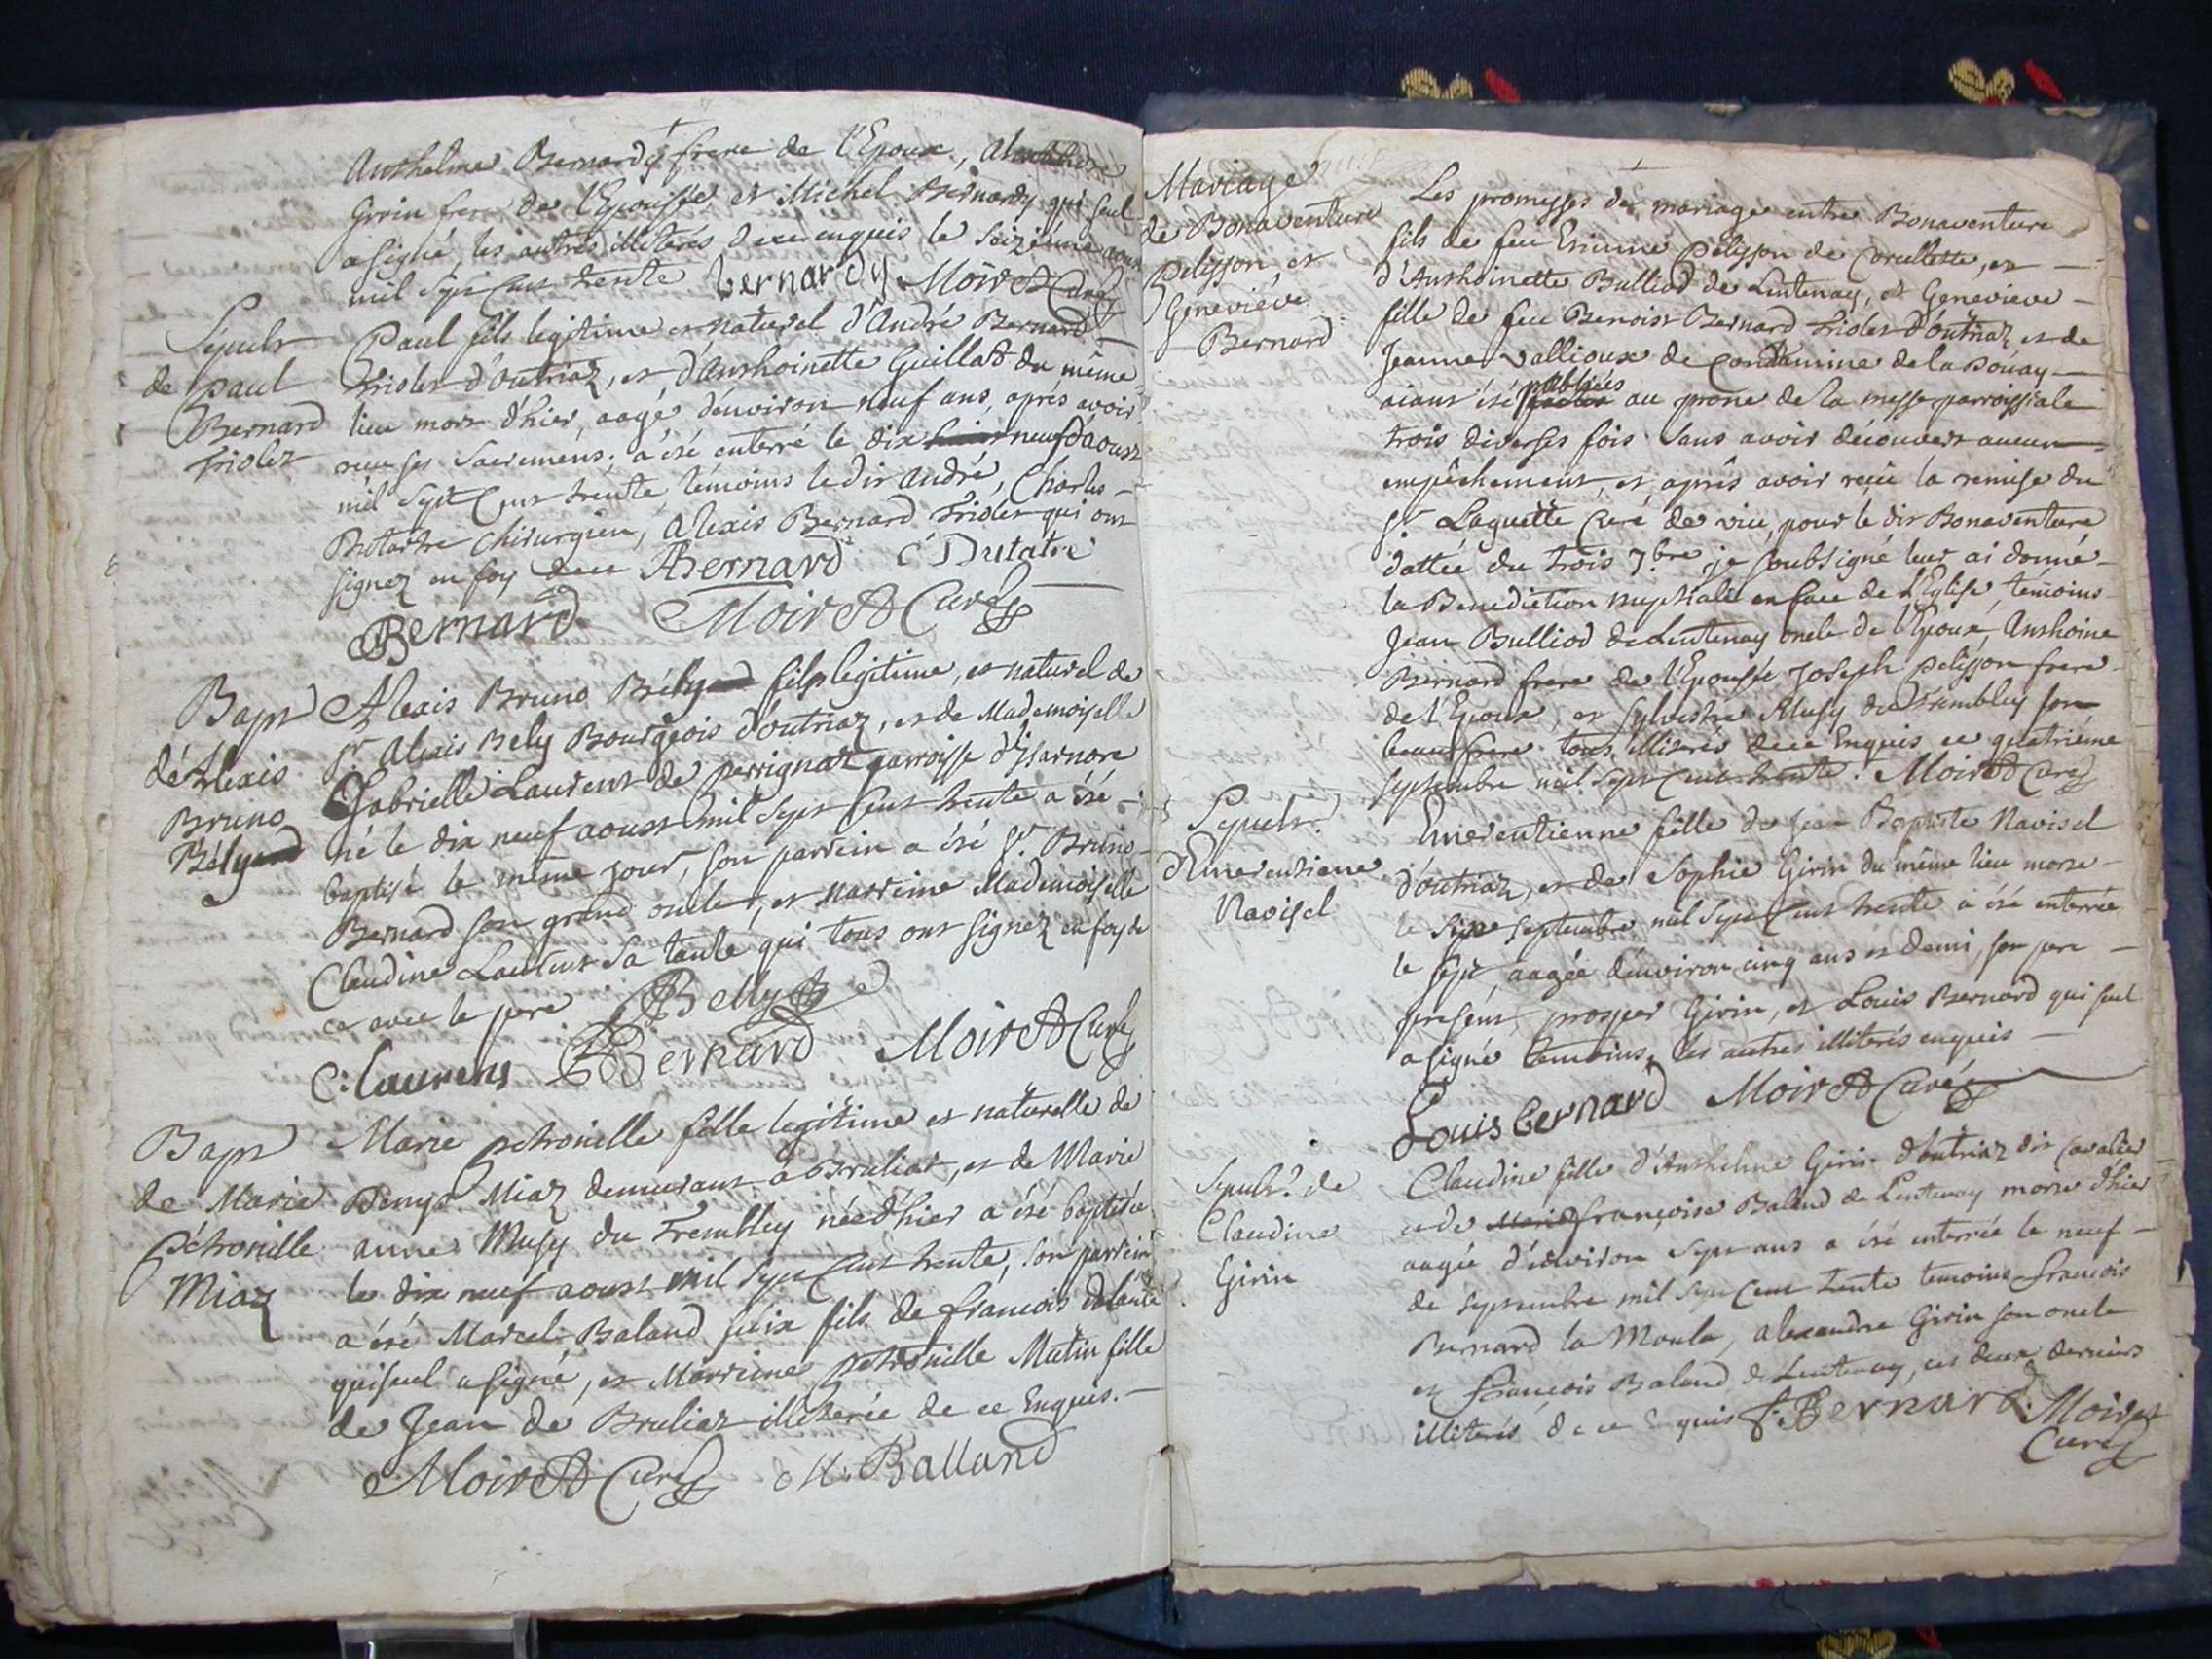 Anthelme Bernardy frere de l'Epoux, Alexandre
Girin frere de l'Epousée et Michel Bernardy qui seul
a signé, les autres illiterés de ce enquis le seizième aoust
mil sept cent trente. bernardy Moiret Curé
Sepult
de paul
Bernard
triolet
Paul fils legitime et naturel d'André Bernard
triolet d'outriaz, et d'Anthoinette Guillot du même
lieu mort d'hier, aagé d'environ neuf ans, aprés avoir
receu ses Sacremens, a été enterré le dix neuf aoust
mil sept cent trente, témoins ledit André, Charles
Dutartre chirurgien, Alexis Bernard triolet qui ont
signez en foy de ce ABernard C Dutatre
Bernard Moiret Curé
Bapt
d'Alexis
Bruno
Bely
Alexis Bruno Bely fils legitime, et naturel de
sr. Alexis Bely Bourgeois d'outriaz, et de Mademoiselle
Gabrielle Laurent de perrignat parroisse d'Isarnore
né le dix neuf aoust mil sept cent trente a été
baptisé le même jour, son parrein a été sr. Bruno
Bernard son grand oncle, et marreine Mademoiselle
Claudine Laurent sa tante qui tous ont signez en foy de
ce avec le pere Belly
C: laurens Bernard Moiret Curé
Bapt
de Marie
pétronille
Miaz
Marie petronille fille legitime et naturelle de
Denys Miaz demeurant a Bruliat, et de Marie
anne Musy du Trembley née d'hier a été baptisée
le dix neuf aoust mil sept cent trente, son parrein
a été Marcel Baland fils de francois
qui seul a signé, et Marreine petronille Mutin fille
de Jean de Bruliat illiterée de ce Enquis.
Moiret Curé M. Balland
Mariage
de Bonaventure
Pelisson et
Geneviéve
Bernard
Les promesses de mariage entre Bonaventure
fils de feu Etienne Pelisson de Corcellette, et
d'Anthoinette Bulliod de Lentenay, et Genevieve
fille de feu Benoist Bernard triolet d'outriaz et de
Jeanne Vallioux de Condamine de la Douay
aiant été publiées au prone de la messe parroissiale
trois diverses fois sans avoir découvert aucun
empêchement, et aprés avoir reçu la remise du
sr. Laguette Curé de vieu, pour le dit Bonaventure
dattée du trois 7.bre je soubsigné leur ai donné
la Benediction nuptiale en face de l'Eglise, témoins
Jean Bulliod de Lentenay oncle de l'Epoux, Anthoine
Bernard frere de l'Epousée Joseph pelisson frere
de l'Epoux, et Sylvestre Musy du Trembley son
beaufrere tous illiterés de ce Enquis ce quatriéme
septembre mil sept cent trente. Moiret Curé
Sepult.
d'Emerentiene
Navisel
Emerentienne fille de Jean Baptiste Navisel
d'outriaz, et de Sophie Girin du même lieu morte
le six septembre mil sept cent trente a été enterrée
le sept, aagée d'environ cinq ans et demi, son pere
present, prosper Girin, et Louis Bernard qui seul
a signé temoins, les autres illiterés enquis
Louis bernard Moiret Curé
Sepult. de
Claudine
Girin
Claudine fille d'Anthelme Girin d'outriaz dit Cavalier
et de françoise Baland de Lentenay morte d'hier
aagée d'environ sept ans a été enterrée le neuf
de septembre mil sept cent trente temoins françois
Bernard la Moula, alexandre Girin son oncle
et François Baland de Lentenay, ces deux derniers
illiterés de ce Enquis f. Bernard. Moiret
Curé